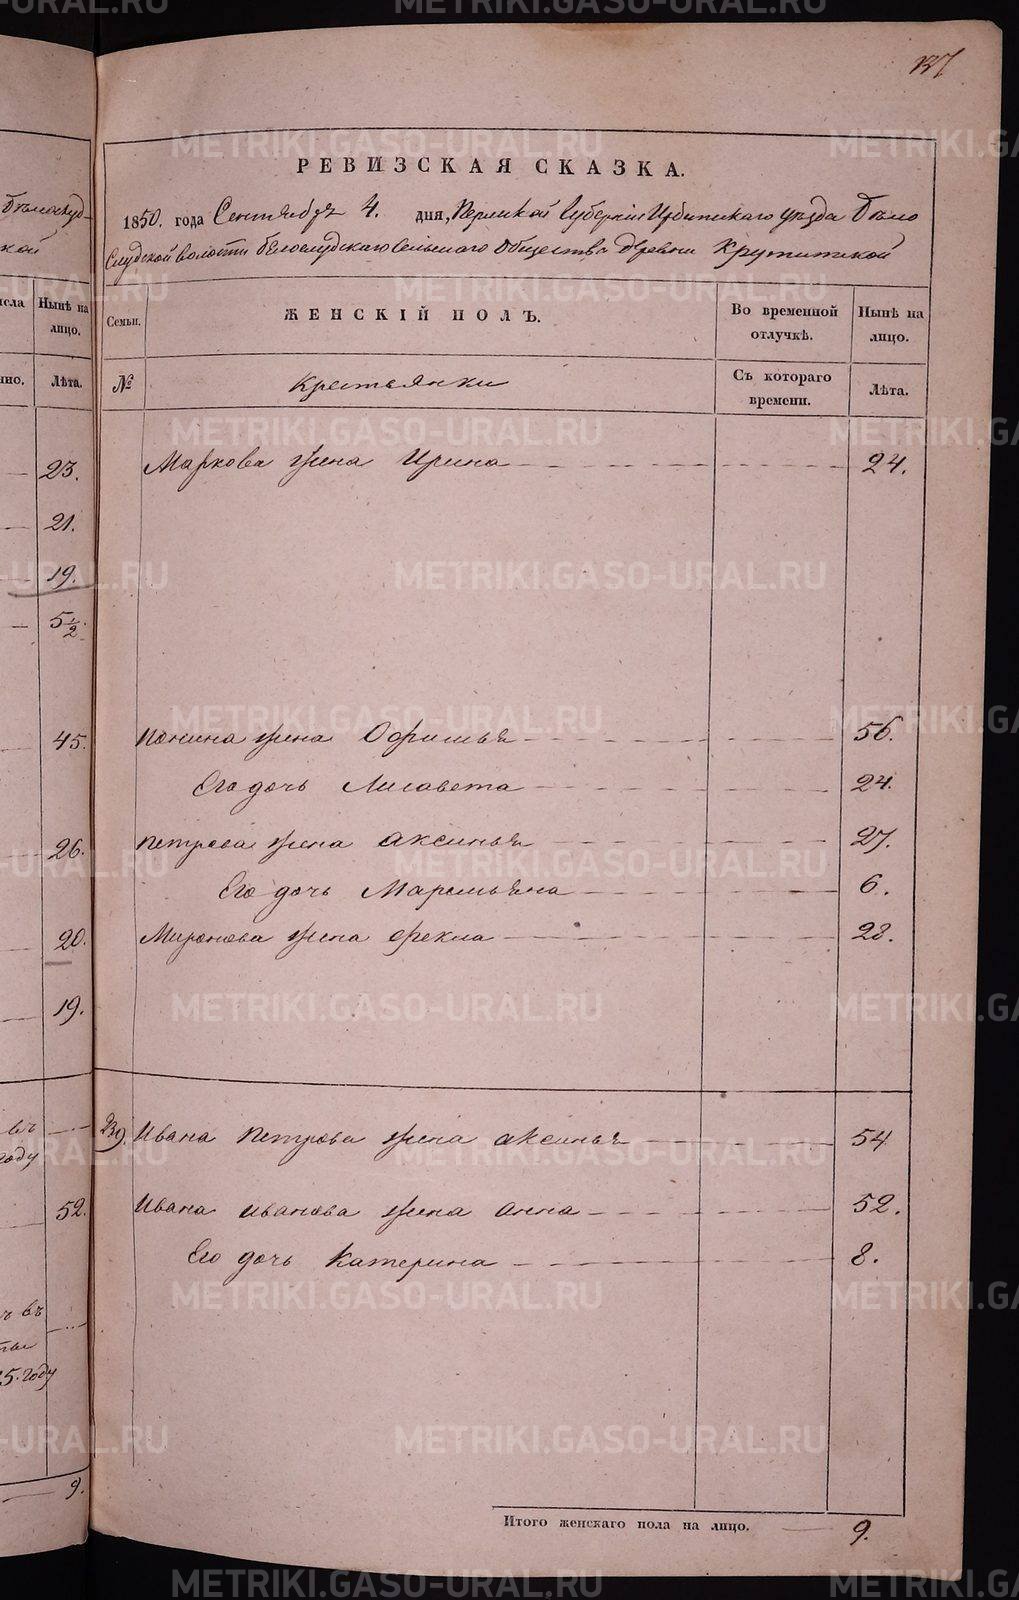 137
РЕВИЗСКАЯ СКАЗКА.
1850. года Сентября 4. дня, Пермской Губернiи Ирбитскаго уѣзда Бѣло
слудской волости белослудскаго сельскаго Общества деревни Крутитской
Семьи. ЖЕНСКIЙ ПОЛЪ. Во временной отлучкѣ. Нынѣ на лицо.
№ Крестьянки Съ котораго времени. Лѣта.
Маркова жена Ирина 24.
жена Офимья 56.
Его дочь Лисавета 24.
Петрова жена Аксинья 27.
Его дочь Маремьяна 6.
Миронова жена Фекла 28.
239. Ивана Петрова жена Аксинья 54
Ивана Иванова жена Анна 52.
Его дочь Катерина 8.
Итого женскаго пола на лицо. 9.
Бѣлослуд-
кой
исла Нынѣ на лицо.
нно. Лѣта.
23.
21.
19.
5 1/2.
45.
26.
20.
19.
въ
году
52.
въ
25. году
9.
METRIKI.GASO-URAL.RU